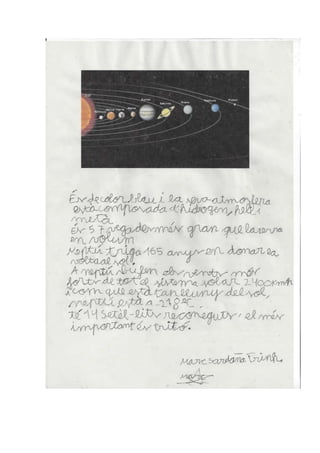 És de color blau i la seva atmosfera
està composada d'hidrogen, heli i
metà
És 57 vegades més gran que la terra
en volum
Neptú triga 165 anys en donar la
volta al sol.
A neptú bufen els vents més
forts de tot el sistema solar 2400kmh
i com que està tan lluny del sol,
neptú està a -218ºC.
té 14 satèl·lits reconeguts, el més
important és tritó.
Marc Sardaña Trinh